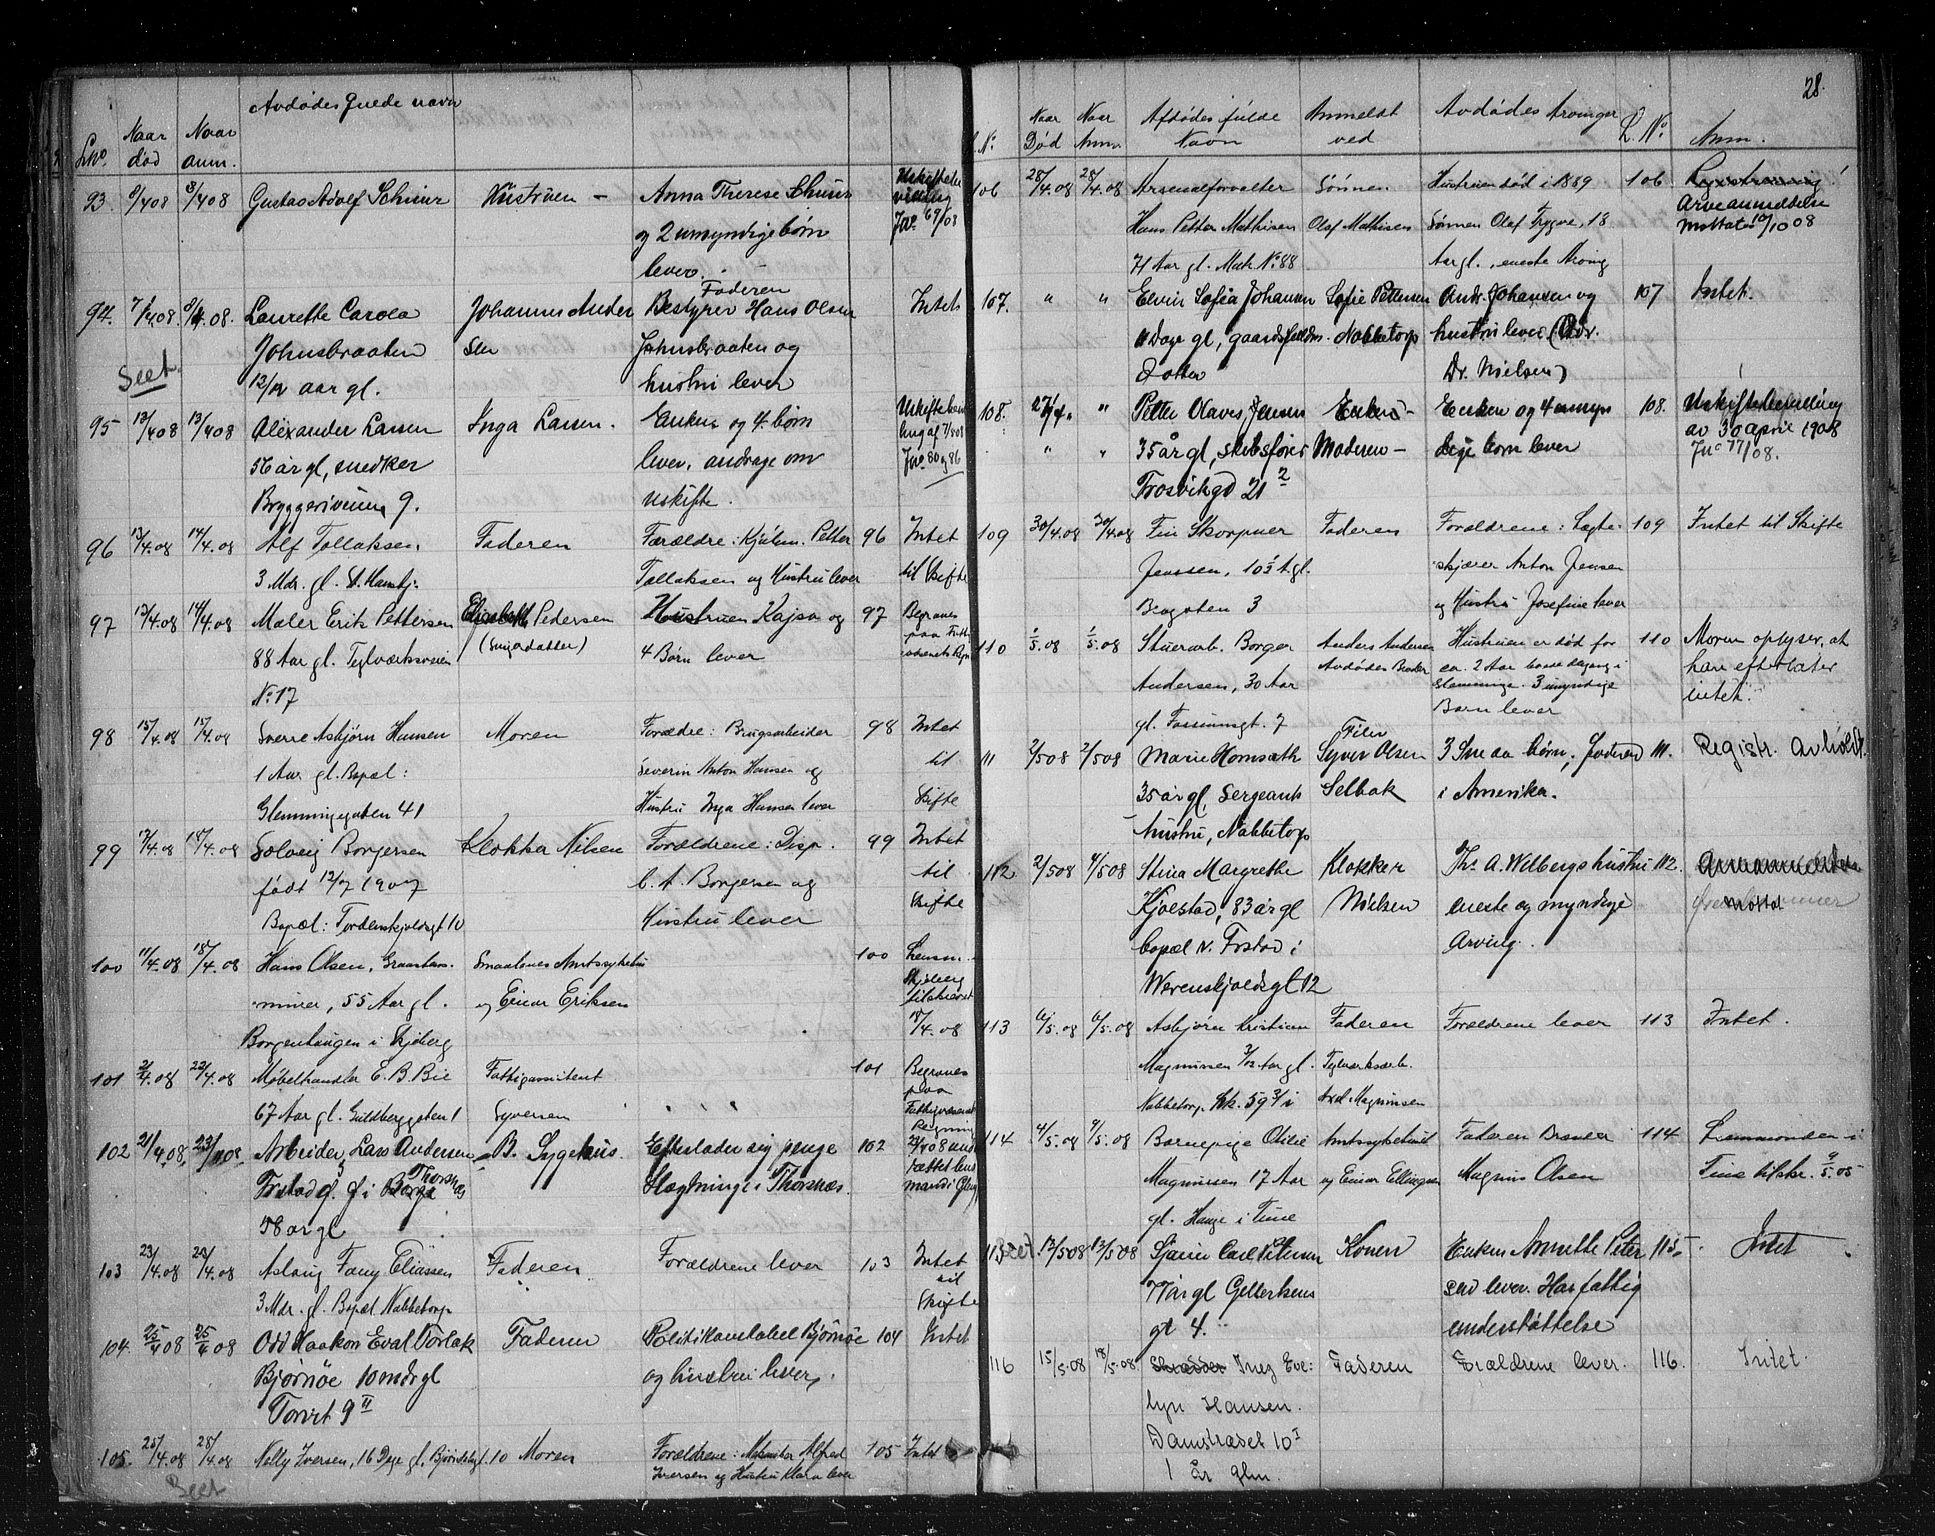 28.
Avdødes fulde navn
Naar død
Naar anm.
93 8/4 08 8/408 Gustav Adolf Schiuur Hustruen — Anna Therese Schiuur
og 2 umyndige børn
lever.
Faderen
94. 7/4.08 8/4.08. Laurette Carola Johannes Ander Bestyrer Hans Olsen Intet
Johnsbraaten sen Johnsbraaten og
Seet. 12/12 aar gl. hustru lever
95 12/408 13/408 Alexander Larsen Inga Larsen. Enken og 4 børn
56 år gl, snedker lever, andrage om
Bryggeriveien 9. uskifte.
96 13/4.08 14/4.08 Alf Tollaksen Faderen Forældre: Petter 96 Intet
3 Mdr. gl. Tollaksen og Hustru lever til Skifte
97 13/4.08 14/4.08 Maler Erik Pettersen Elisabeth Pedersen Hustruen Kajsa og 97 Begraves
88 Aar gl. Teglværksveien 4 Børn lever paa
No 17
98 15/4.08 15/4.08 Sverre Asbjørn Hansen Moren Forældre: Brugsarbeider 98 Intet
1 Aar gl. Bopæl: Severin Anton Hansen og til
Glemmingegaten 41 Hustru Inga Hansen lever Skifte
99 17/4.08 18/4.08 Solveig Borgersen Klokker Nilsen Forældrene: Disp. 99 Intet
født 12/7 1907 C. A. Borgersen og til
Bopæl: Tordenskjoldsgt 10 Hustru lever Skifte
100 17/4.08 18/4.08 Hans Olsen, Smaalenes Amtssykehus 100 Lensm.
55 Aar gl. og Einar Eriksen Skjeberg
Borgenhaugen i Skjeberg tilskrevet
18/4.08
101 21/4.08 22/4.08 Møbelhandler E. B. Bie Fattigassistent 101 Begraves
67 Aar gl. Guldberggaten 1 Syversen paa
Fattigvæsenets
Regning
102 21/4.08. 23/4 08. Arbeider Lars Andersen B. Sygehus. Efterlader sig penge 102
Thorsnæs
i Borge Slægtninge i Thorsnæs.
58 ar gl
103 23/4.08 24/4.08 Aslaug Fany Eliassen Faderen Forældrene lever 103 Intet
3 Mdr. gl. Bopæl Nabbetorp til
Skifte
104. 25/4 08 25/4 08 Odd Haakon Eval Torlak Faderen Politikonstabel Bjørnøe 104 Intet
Bjørnøe 10 mdr gl og hustru lever.
Torvet 9 II
105. 25/4.08 28/4.08 Nelly Iversen, 16 Dage gl, 10 Moren Forældrene: Alfred 105 Intet
Seet Iversen og Hustru Klara lever
No. Naar Død Naar Anm. Afdødes fulde Navn Anmeldt ved Avdødes Arvinger L. No. Anm.
106 28/4.08 28/4.08 Arsenalforvalter Sønnen Hustruen død i 1889 106
Arveanmeldelse
Hans Petter Mathisen Olaf Mathisen Sønnen Olaf Trygve, 18 mottat 10/10 08
71 Aar gl. Matr No. 88 Aar gl., eneste Arving
107. " " Elvin Sofia Johansen Sofie Pettersen Andr. Johansen og 107 Intet.
11 Dage gl, Nabbetorp hustru lever (Adr.
Datter Dr. Nielsen)
108. 27/4 " Petter Olaves Jensen Enken — Enken og 4 umyn 108. Uskiftebevilling
" " 35 år gl, skibsfører Moderen — dige børn lever av 30 april 1908
Trosvikgd 21 2 Jno 77/08.
109 30/4.08 30/4.08 Fin Skorpner Faderen Forældrene: 109 Intet til Skifte
Jenssen, 10 gl. skjærer Anton Jensen
3 og Hustru Josefine lever
110 1/5.08 1/5.08 Borger Anders Andersen Hustruen er død for 110 Moren oplyser, at
Andersen, 30 Aar Avdødes Broder ca. 2 Aar i han efterlater
gl. Fossumsgt. 7 Glemminge. 3 umyndige intet.
Børn lever
Filer
111 2/508 2/508 Marie Hornsæth Syver Olsen 3 Smaa børn, Faderen 111. Registr. avholdt.
35 år gl, Sergeant Selbak i Amerika.
hustru, Nabbetorp
112 2/508 4/508 Stina Margrethe Klokker Th. A. Welbergs hustru 112.
Kjolstad, 83 år gl Nielsen eneste og myndige
bopæl v. Frstad i Arving.
Werenskjoldsgt 12
113 6/5.08 6/5.08 Asbjørn Kristian Faderen Forældrene lever 113 Intet.
Magnussen 3/12 Aar gl. Teglverksarb.
Nabbetorp Axel Magnussen
114 4/5.08 7/5.08 Barnepige Otilie Amtssykehuset Faderen 114 Lensmanden i
Magnussen 17 Aar og Einar Ellingsen Magnus Olsen Tune tilskr. 9/5.08
gl. Hauge i Tune
115 Seet 12/508 13/508 Carl Petersen Konen Enken Annette Peter 115. Intet
77 år gl Gellertsens sen lever. Har fattig
gt 4. understøttelse
116 15/5.08 18/5.08. Inez Eve: Faderen Forældrene lever. 116. Intet.
lyn Hansen.
Damstræset 10 I
1 år glm.